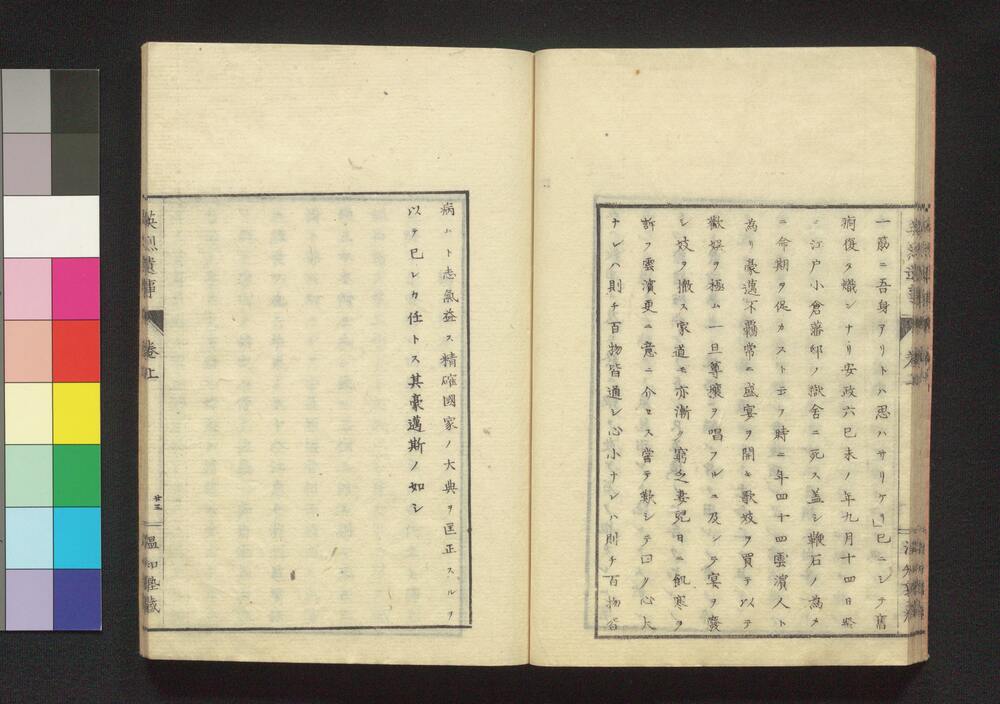 一筋ニ吾身アリトハ思ハサリケリ」已ニシテ舊
痾復タ熾シナリ安政六己未ノ年九月十四日終
ニ江戸小倉藩邸ノ獄舍ニ死ス蓋シ鞭石ノ為メ
ニ命期ヲ促カスト云フ時ニ年四十四雲濱人ト
為リ豪邁不羈常ニ盛宴ヲ開キ歌妓ヲ買テ以テ
歡娯ヲ極ム一旦尊攘ヲ唱フルニ及ンテ宴ヲ廢
シ妓ヲ撤ス家道モ亦漸ク窮乏妻兒日ニ飢寒ヲ
訴フ雲濱更ニ意ニ介セス嘗テ歎シテ曰ク心大
ナレハ則チ百物皆通シ心小ナレハ則チ百物皆
病ムト志氣益ス精確國家ノ大典ヲ匡正スルヲ
以テ已レカ任トス其豪邁斯ノ如シ
英烈遺事
卷上
廿三
温知塾藏